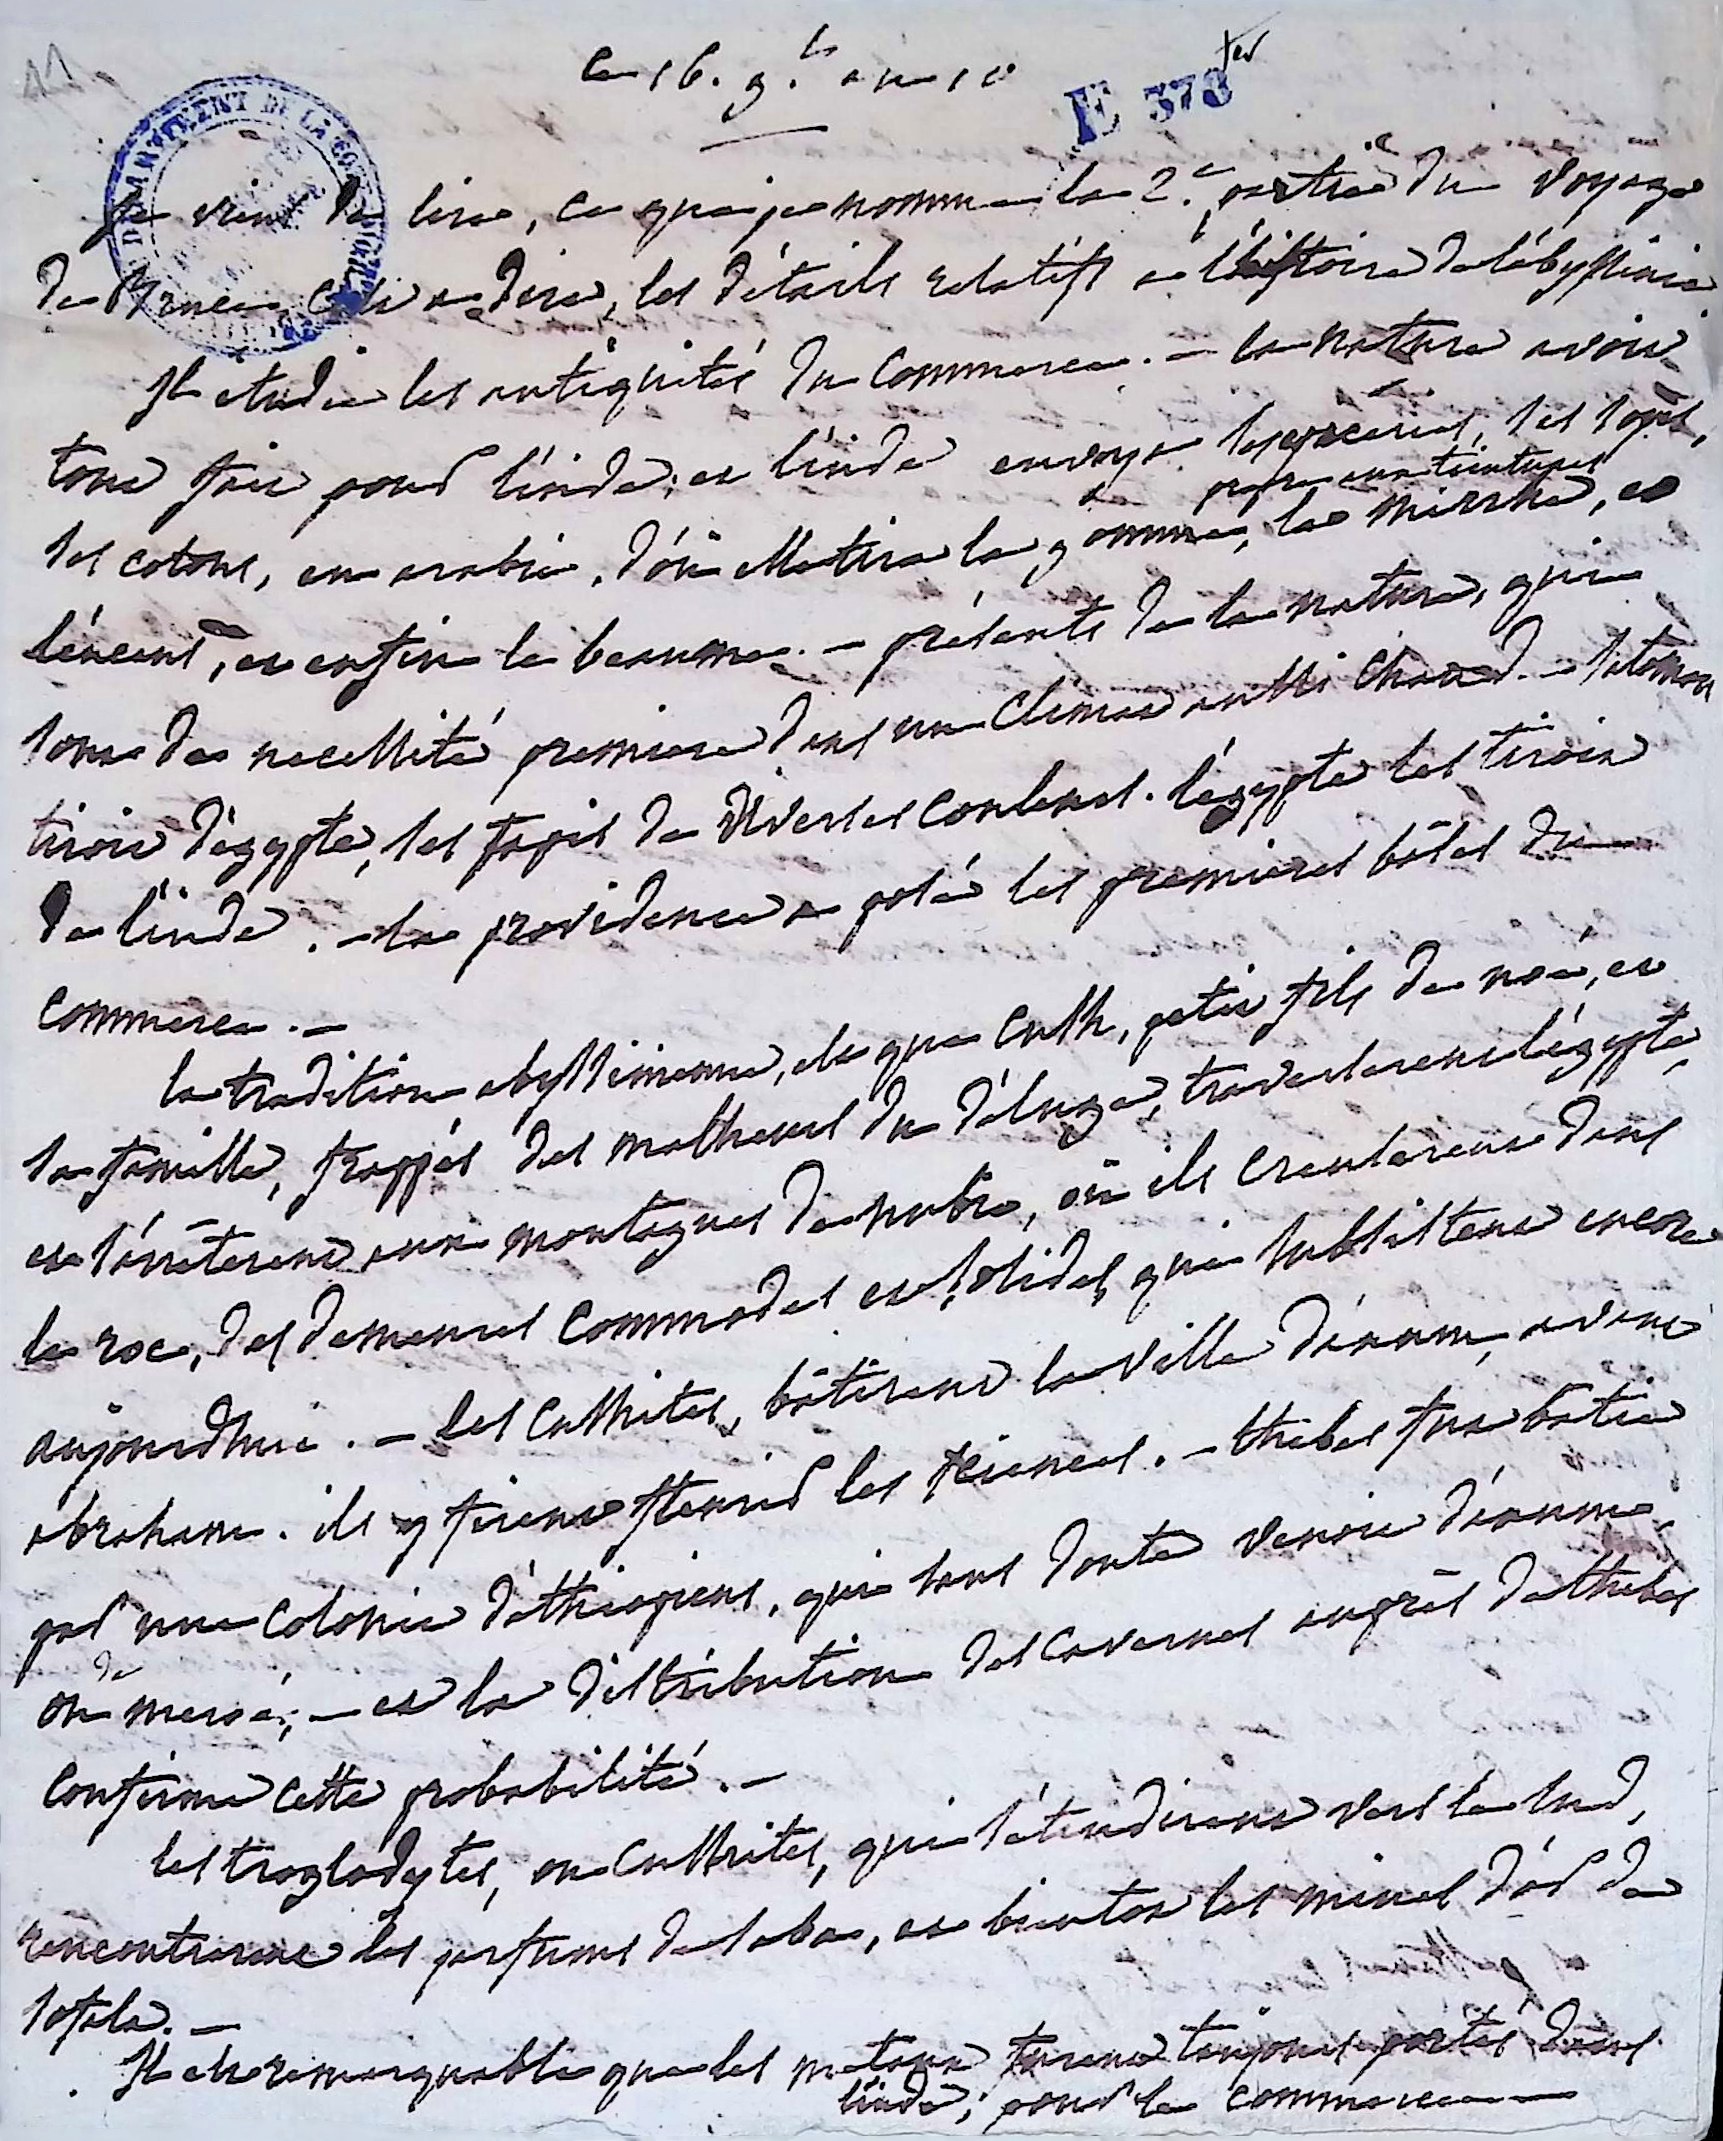 11.
Le 16. 9.bre an 10
E 378 ter
DÉPARTEMENT DE LA CÔTE-D'OR
Je viens de lire, ce que je nomme la 2.e partie du voyage
de Bruce, c'est a dire, les détails relatifs a l'histoire de l'abyssinie
Il étudie les antiquités du commerce. — la nature avoit
tout fait pour l'inde; et l'inde envoya ses épiceries, ses soyes,
propre aux teintures
ses cotons, en arabie, d'où elle tira la gomme, la mirrhe, et
l'encens, et enfin le beaume. — présents de la nature, qui
sont de necessité premiere dans un climat aussi chaud. — Salomon
tiroit d'égypte, ses tapis de diverses couleurs. l'égypte les tiroit
de l'inde. — la providence a posé les premieres bases du
commerce. —
la tradition abyssinienne, est que Cush, petit fils de noé, et
sa famille, frappés des malheurs du déluge, traverserent l'égypte,
et s'arrêterent aux montagnes de nubie, où ils creuserent dans
le roc, des demeures commodes et solides, qui subsistent encore
aujourdhui. — Les Cushites, bâtirent la ville d'axum, avant
abraham. ils y firent fleurir les sciences. — thebes fut batie
par une colonie d'éthiopiens, qui sans doute venoit d'axum
ou de meroé; — et la distribution des cavernes auprès de thebes
confirme cette probabilité. —
les troglodytes, ou Cushites, qui s'étendirent vers le sud,
rencontrerent les parfums de saba, et bientot les mines d'or de
sofala. —
Il est remarquable que les metaux furent toujours portés dans
l'inde, pour le commerce —